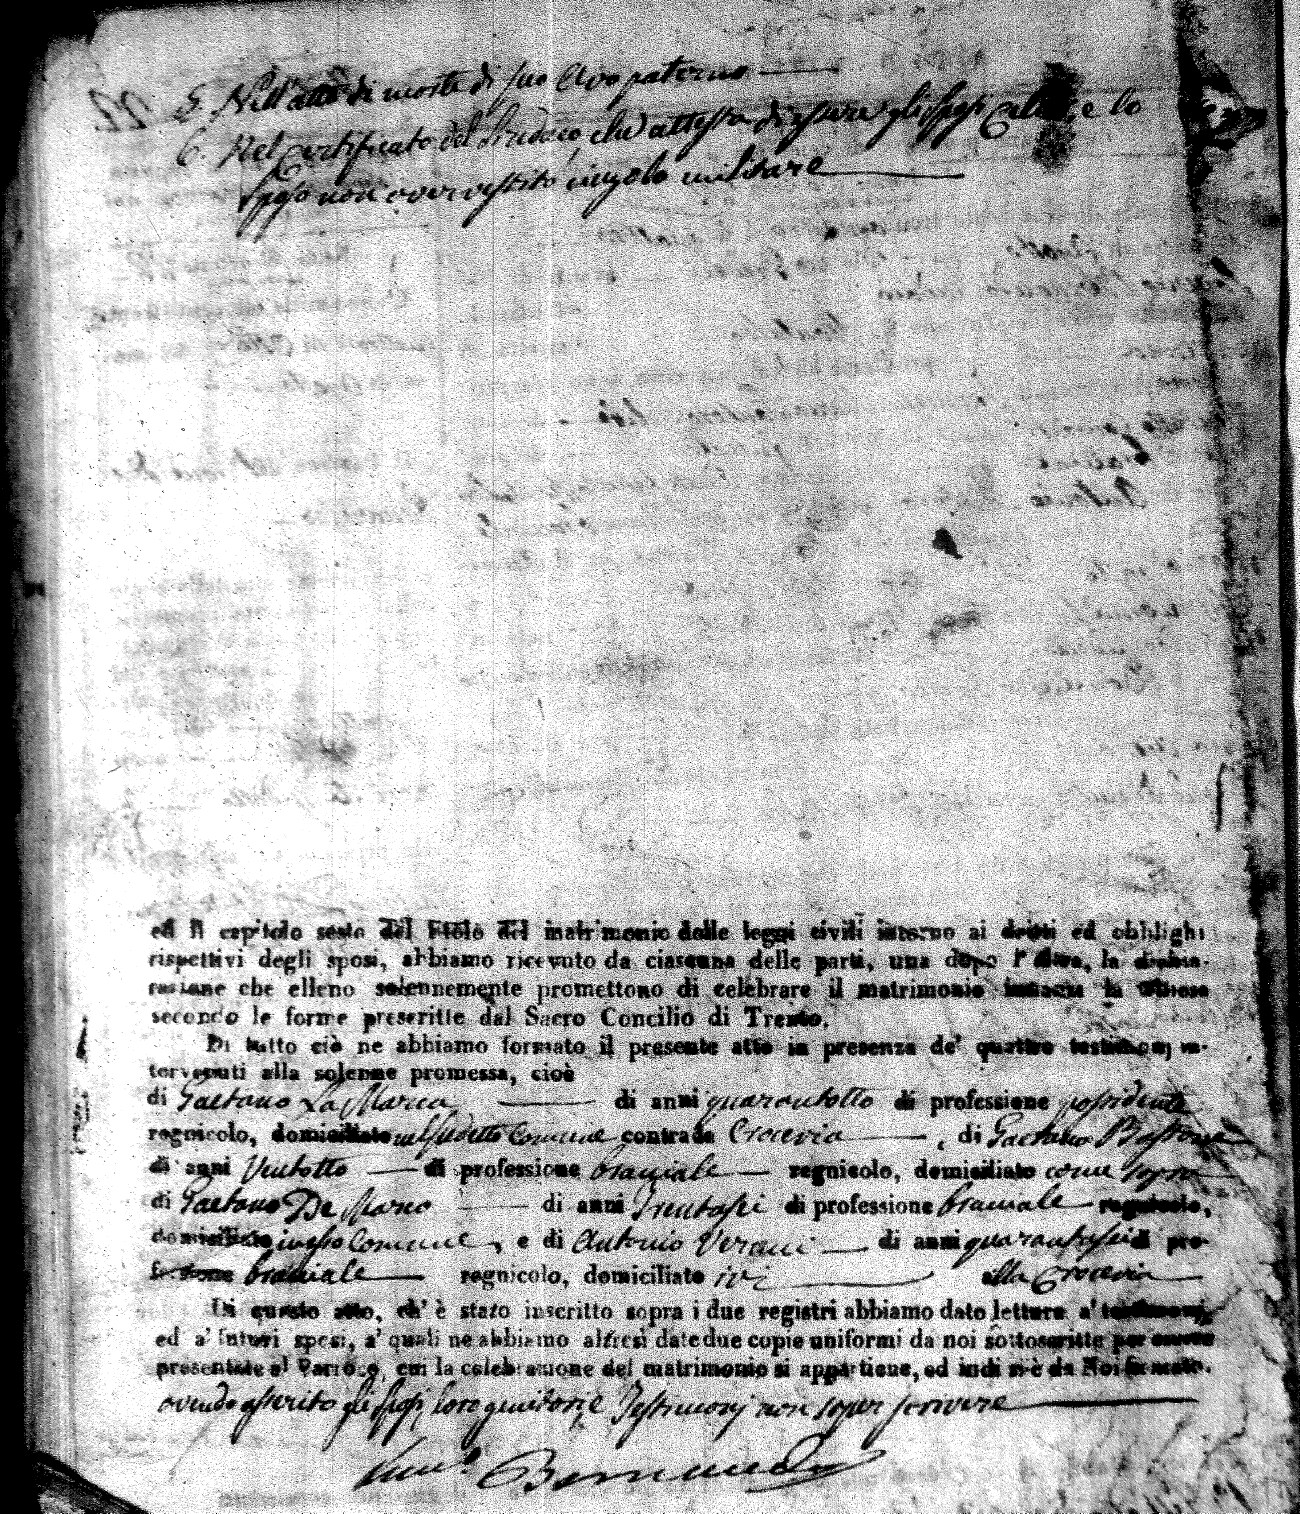 5. Nell'atto di morte di suo Avo paterno
6. Nel Certificato del Sindaco, che attesta di essere gli sposi Celibi, e lo
sposo non aver vestito cingolo militare
ed il capitolo sesto del titolo del matrimonio delle leggi civili intorno ai dritti ed obblighi
rispettivi degli sposi, abbiamo ricevuto da ciascuna delle parti, una dopo l'altra, la dichia-
razione che elleno solennemente promettono di celebrare il matrimonio innanzi la Chiesa
secondo le forme prescritte dal Sacro Concilio di Trento.
Di tutto ciò ne abbiamo formato il presente atto in presenza de' quattro testimonj in-
tervenuti alla solenne promessa, cioè
di Gaetano La Marca di anni quarantotto di professione possidente
regnicolo, domiciliato nel suddetto Comune contrada Crocevia, di Gaetano
di anni Ventotto di professione bracciale regnicolo, domiciliato come sopra
di Gaetano De Marco di anni Trentasei di professione bracciale regnicolo,
domiciliato in esso Comune, e di Antonio di anni quarantasei di pro-
fessione bracciale regnicolo, domiciliato ivi alla Crocevia
Di questo atto, ch' è stato inscritto sopra i due registri abbiamo dato lettura a' testimonj,
ed a' futuri sposi, a' quali ne abbiamo altresì date due copie uniformi da noi sottoscritte per essere
presentate al Parroco, cui la celebrazione del matrimonio si appartiene, ed indi n'è da Noi firmato.
avendo asserito gli sposi, loro genitori, e Testimonj non saper scrivere